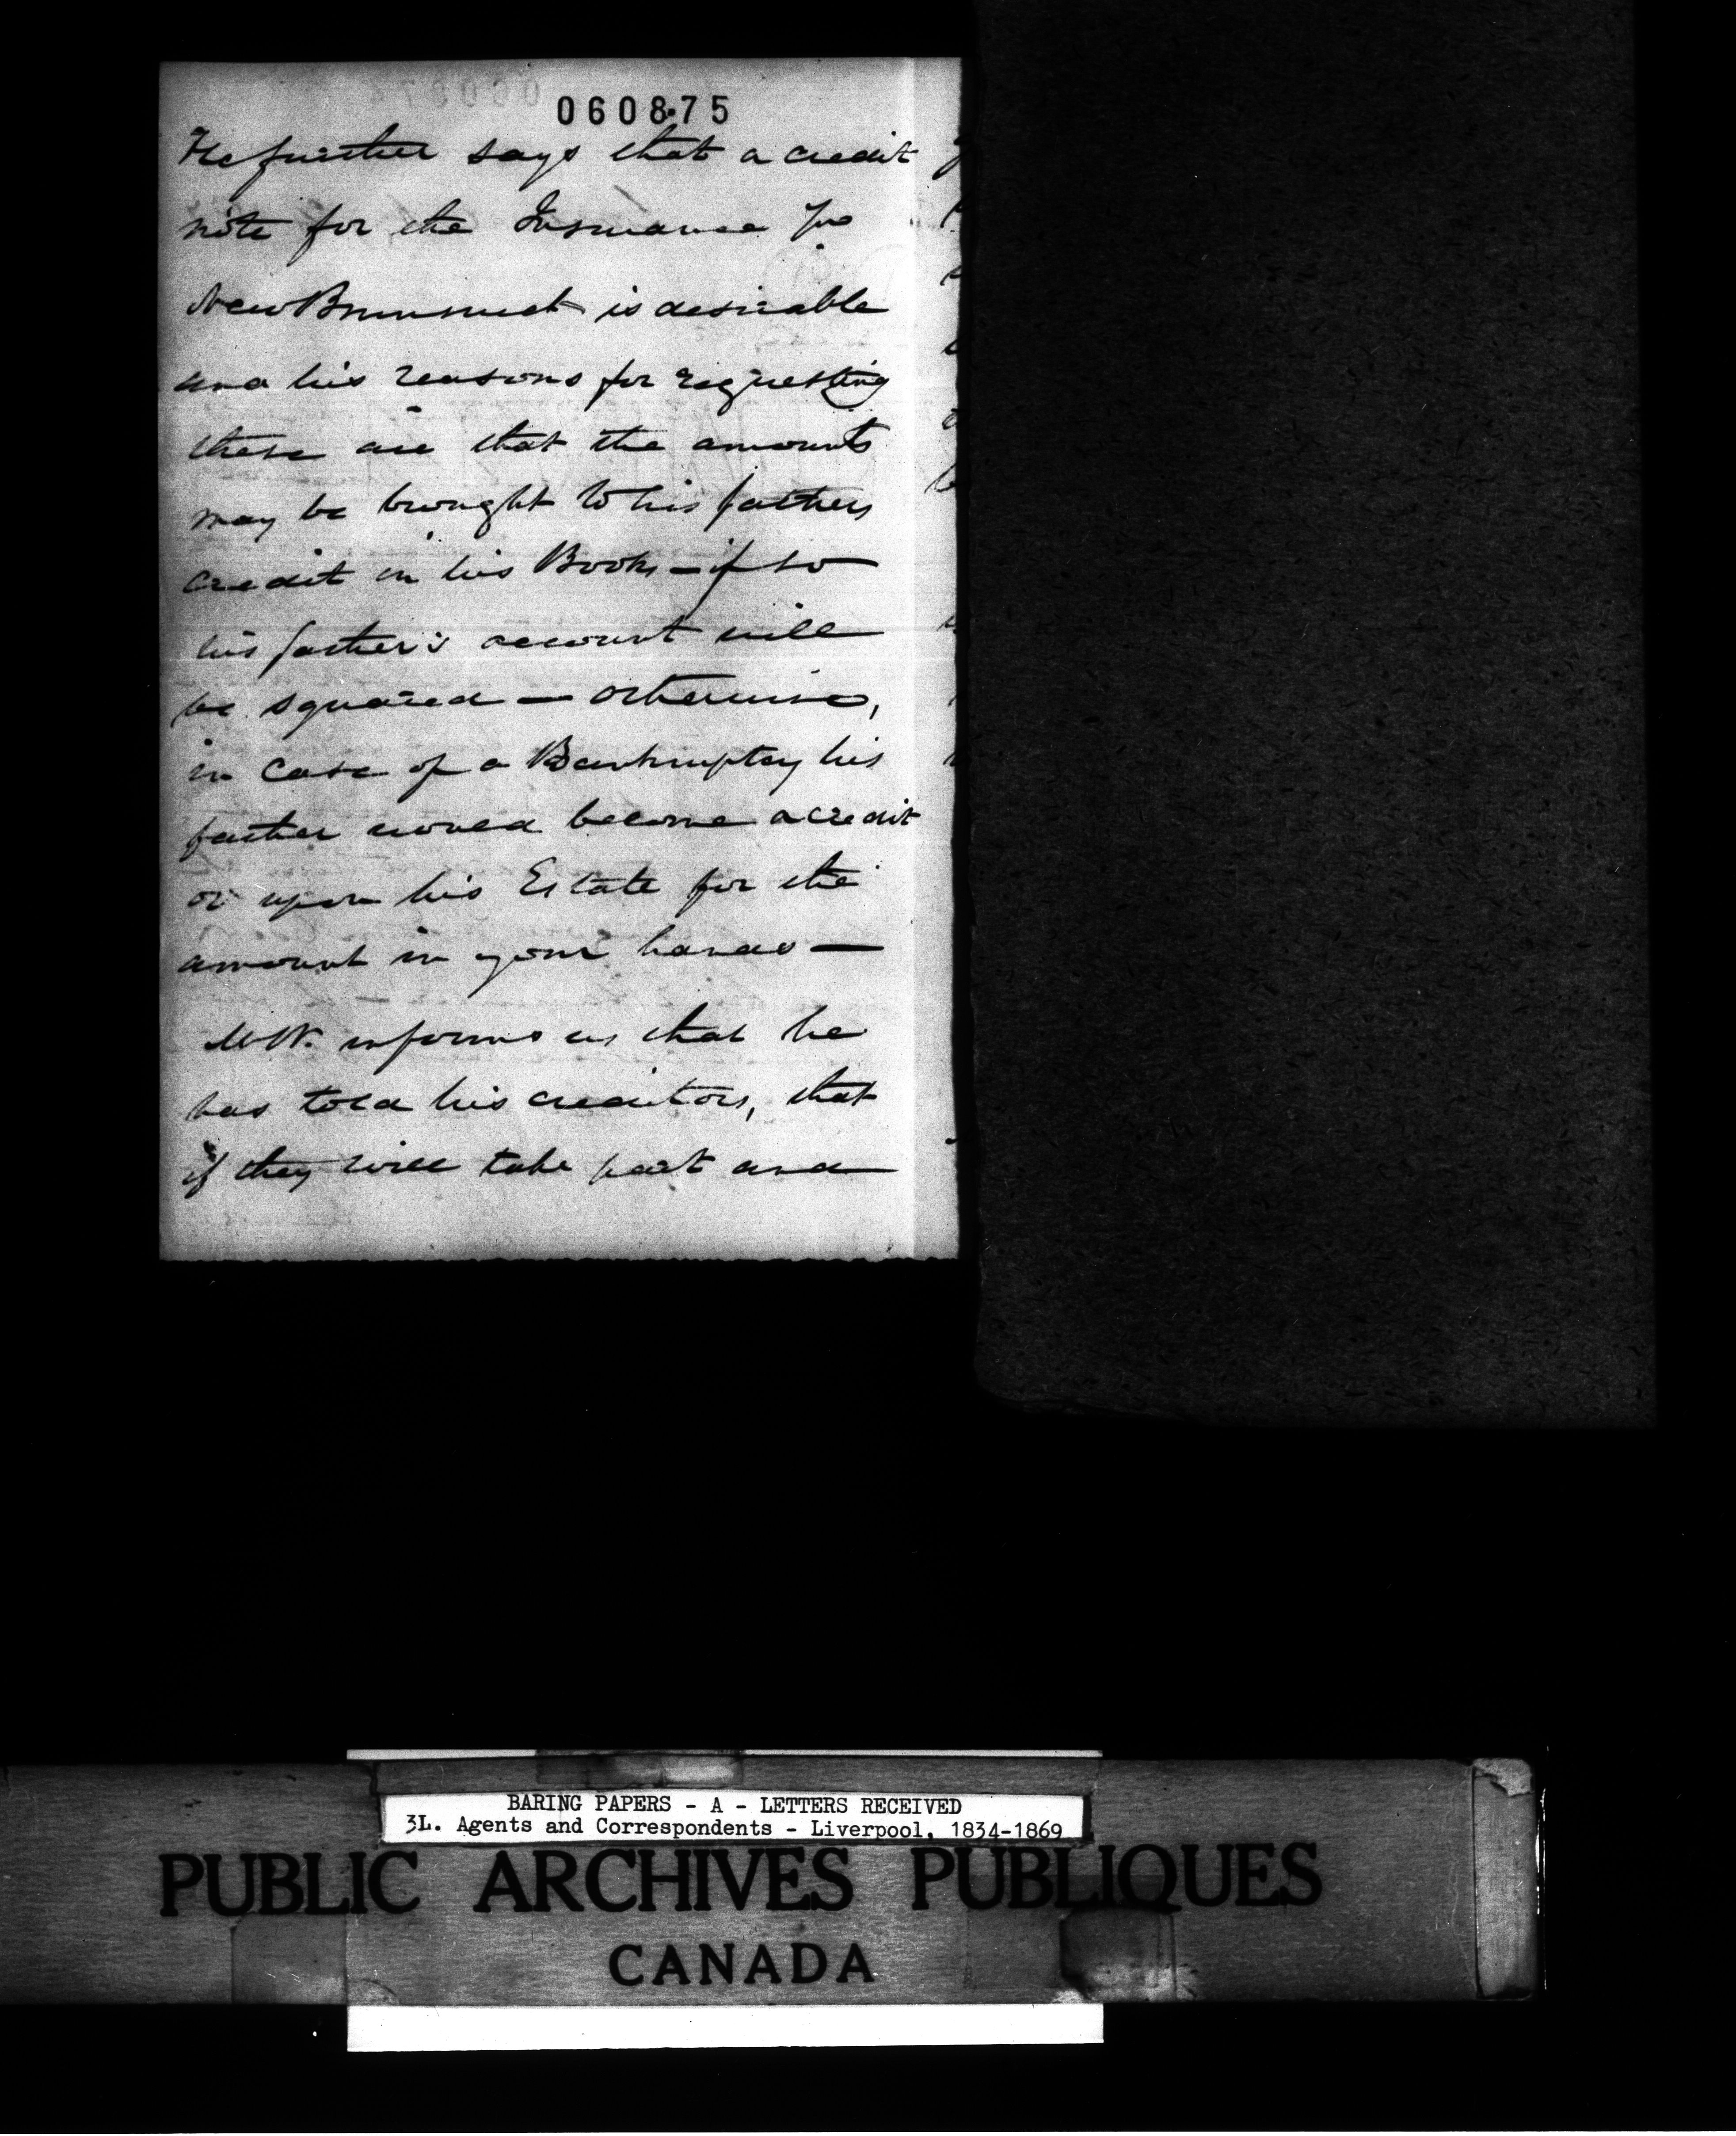 060875
He further says that a credit
note for the Insurance per
New Brunswick is desirable
and his reasons for requesting
these are that the amounts
may be brought to his fathers
credit in his Books - if so
his father's account will
be squared - otherwise,
in case of a Bankruptcy his
father would become a credit
or upon his Estate for the
amount in your hands -
informs us that he
has told his creditors, that
if they will take part and
BARING PAPERS - A - LETTERS RECEIVED
3L. Agents and Correspondents - Liverpool, 1834-1869
PUBLIC ARCHIVES PUBLIQUES
CANADA